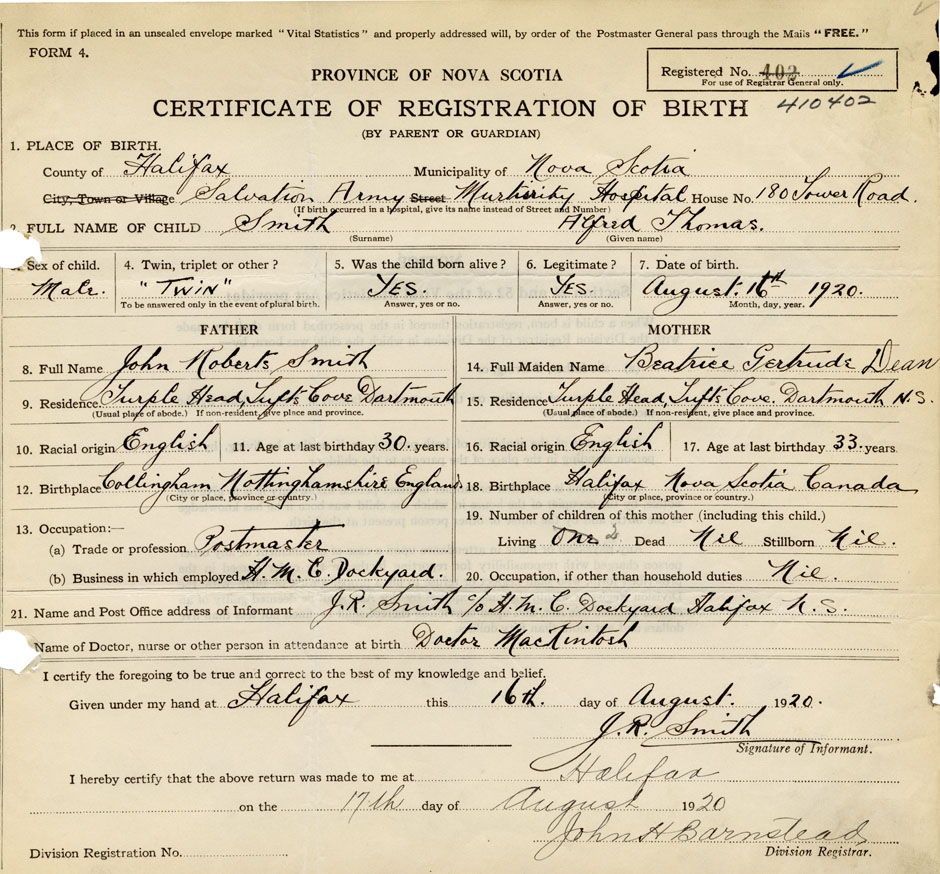 This form if placed in an unsealed envelope marked "Vital Statistics" and properly addressed will, by order of the Postmaster General pass through the Mails "FREE."
FORM 4.
Registered No. 402
For use of Registrar General only.
PROVINCE OF NOVA SCOTIA
CERTIFICATE OF REGISTRATION OF BIRTH 410402
(BY PARENT OR GUARDIAN)
1. PLACE OF BIRTH.
County of Halifax Municipality of Nova Scotia
City, Town or Village Salvation Army Street Murtirity Hospital House No. 180 Tower Road.
(If birth occurred in a hospital, give its name instead of Street and Number)
2. FULL NAME OF CHILD Smith Alfred Thomas.
(Surname) (Given name)
3. Sex of child. 4. Twin, triplet or other? 5. Was the child born alive? 6. Legitimate? 7. Date of birth.
Male. "TWIN" YES. YES. August. 16th 1920.
To be answered only in the event of plural birth. Answer, yes or no. Answer, yes or no. Month, day, year.
FATHER MOTHER
8. Full Name John Roberts Smith 14. Full Maiden Name Beatrice Gertrude Dean
9. Residence Turple Head, Tufts Cove Dartmouth 15. Residence Turple Head, Tufts Cove. Dartmouth N.S.
(Usual place of abode.) If non-resident, give place and province. (Usual place of abode.) If non-resident, give place and province.
10. Racial origin English 11. Age at last birthday 30. years. 16. Racial origin English 17. Age at last birthday 33. years.
12. Birthplace Collingham Nottinghamshire England 18. Birthplace Halifax Nova Scotia Canada
(City or place, province or country.) (City or place, province or country.)
13. Occupation:— 19. Number of children of this mother (including this child.)
(a) Trade or profession Postmaster Living One 2 Dead Nil Stillborn Nil.
(b) Business in which employed H.M.C. Dockyard. 20. Occupation, if other than household duties Nil.
21. Name and Post Office address of Informant J.R. Smith c/o H.M.C. Dockyard Halifax N.S.
Name of Doctor, nurse or other person in attendance at birth Doctor MacKintosh
I certify the foregoing to be true and correct to the best of my knowledge and belief.
Given under my hand at Halifax this 16th. day of August. 1920.
J.R. Smith
Signature of Informant.
I hereby certify that the above return was made to me at Halifax
on the 17th day of August 1920
John H Barnstead
Division Registration No. Division Registrar.